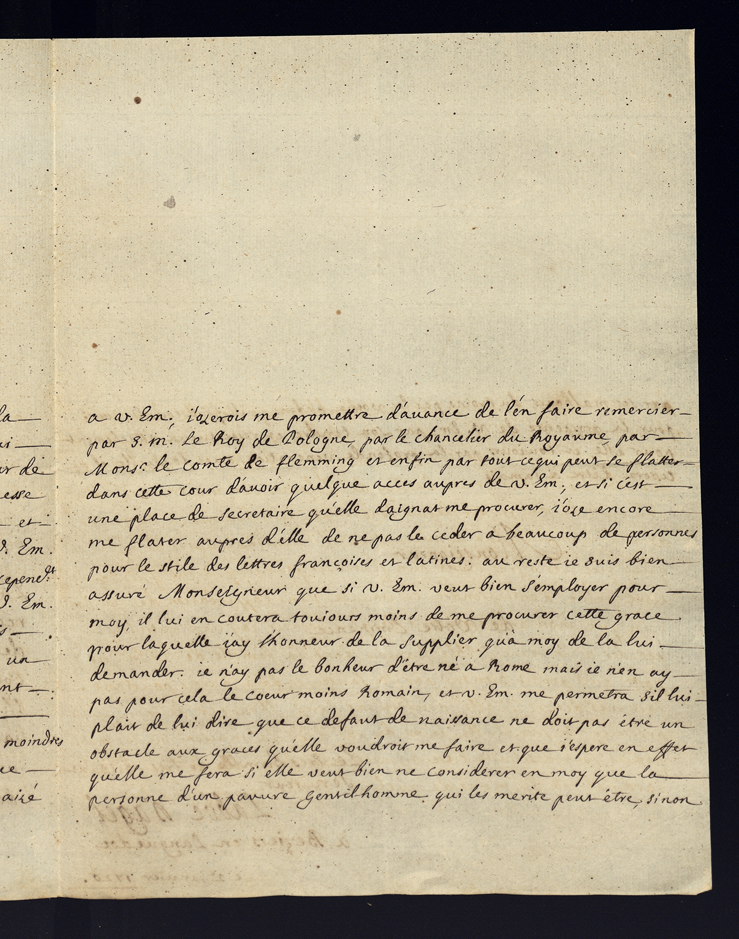 la
a v. Em. i'ozerois me promettre d'avance de l'en faire remercier
par S. M. Le Roy de Pologne, par le chancelier du Royaume, par
ur de
Monsr. le comte de flemming et enfin par tout ce qui peut se flatter
esse
dans cette cour d'avoir quelque acces aupres de v. Em. et si c'est
et
une place de secretaire qu'elle daignat me procurer, i'oze encore
v. Em.
me flater aupres d'elle de ne pas la ceder a beaucoup de personnes
cepend.t
pour le stile des lettres françoises et latines. au reste ie suis bien
v. Em.
assuré Monseigneur que si v. Em. veut bien s'employer pour
moy, il lui en coutera touiours moins de me procurer cette grace
un
pour laquelle i'ay l'honneur de la supplier qu'a moy de la lui
nt
demander. ie n'ay pas le bonheur d'étre né a Rome mais ie n'en ay
pas pour cela le coeur moins Romain, et v. Em. me permetra s'il lui
moindres
plait de lui dire que ce defaut de naissance ne doit pas étre un
obstacle aux graces qu'elle voudroit me faire et que i'espere en effet
aizé
qu'elle me fera si elle veut bien ne considerer en moy que la
personne d'un pauvre gentilhomme qui les merite peut étre, sinon